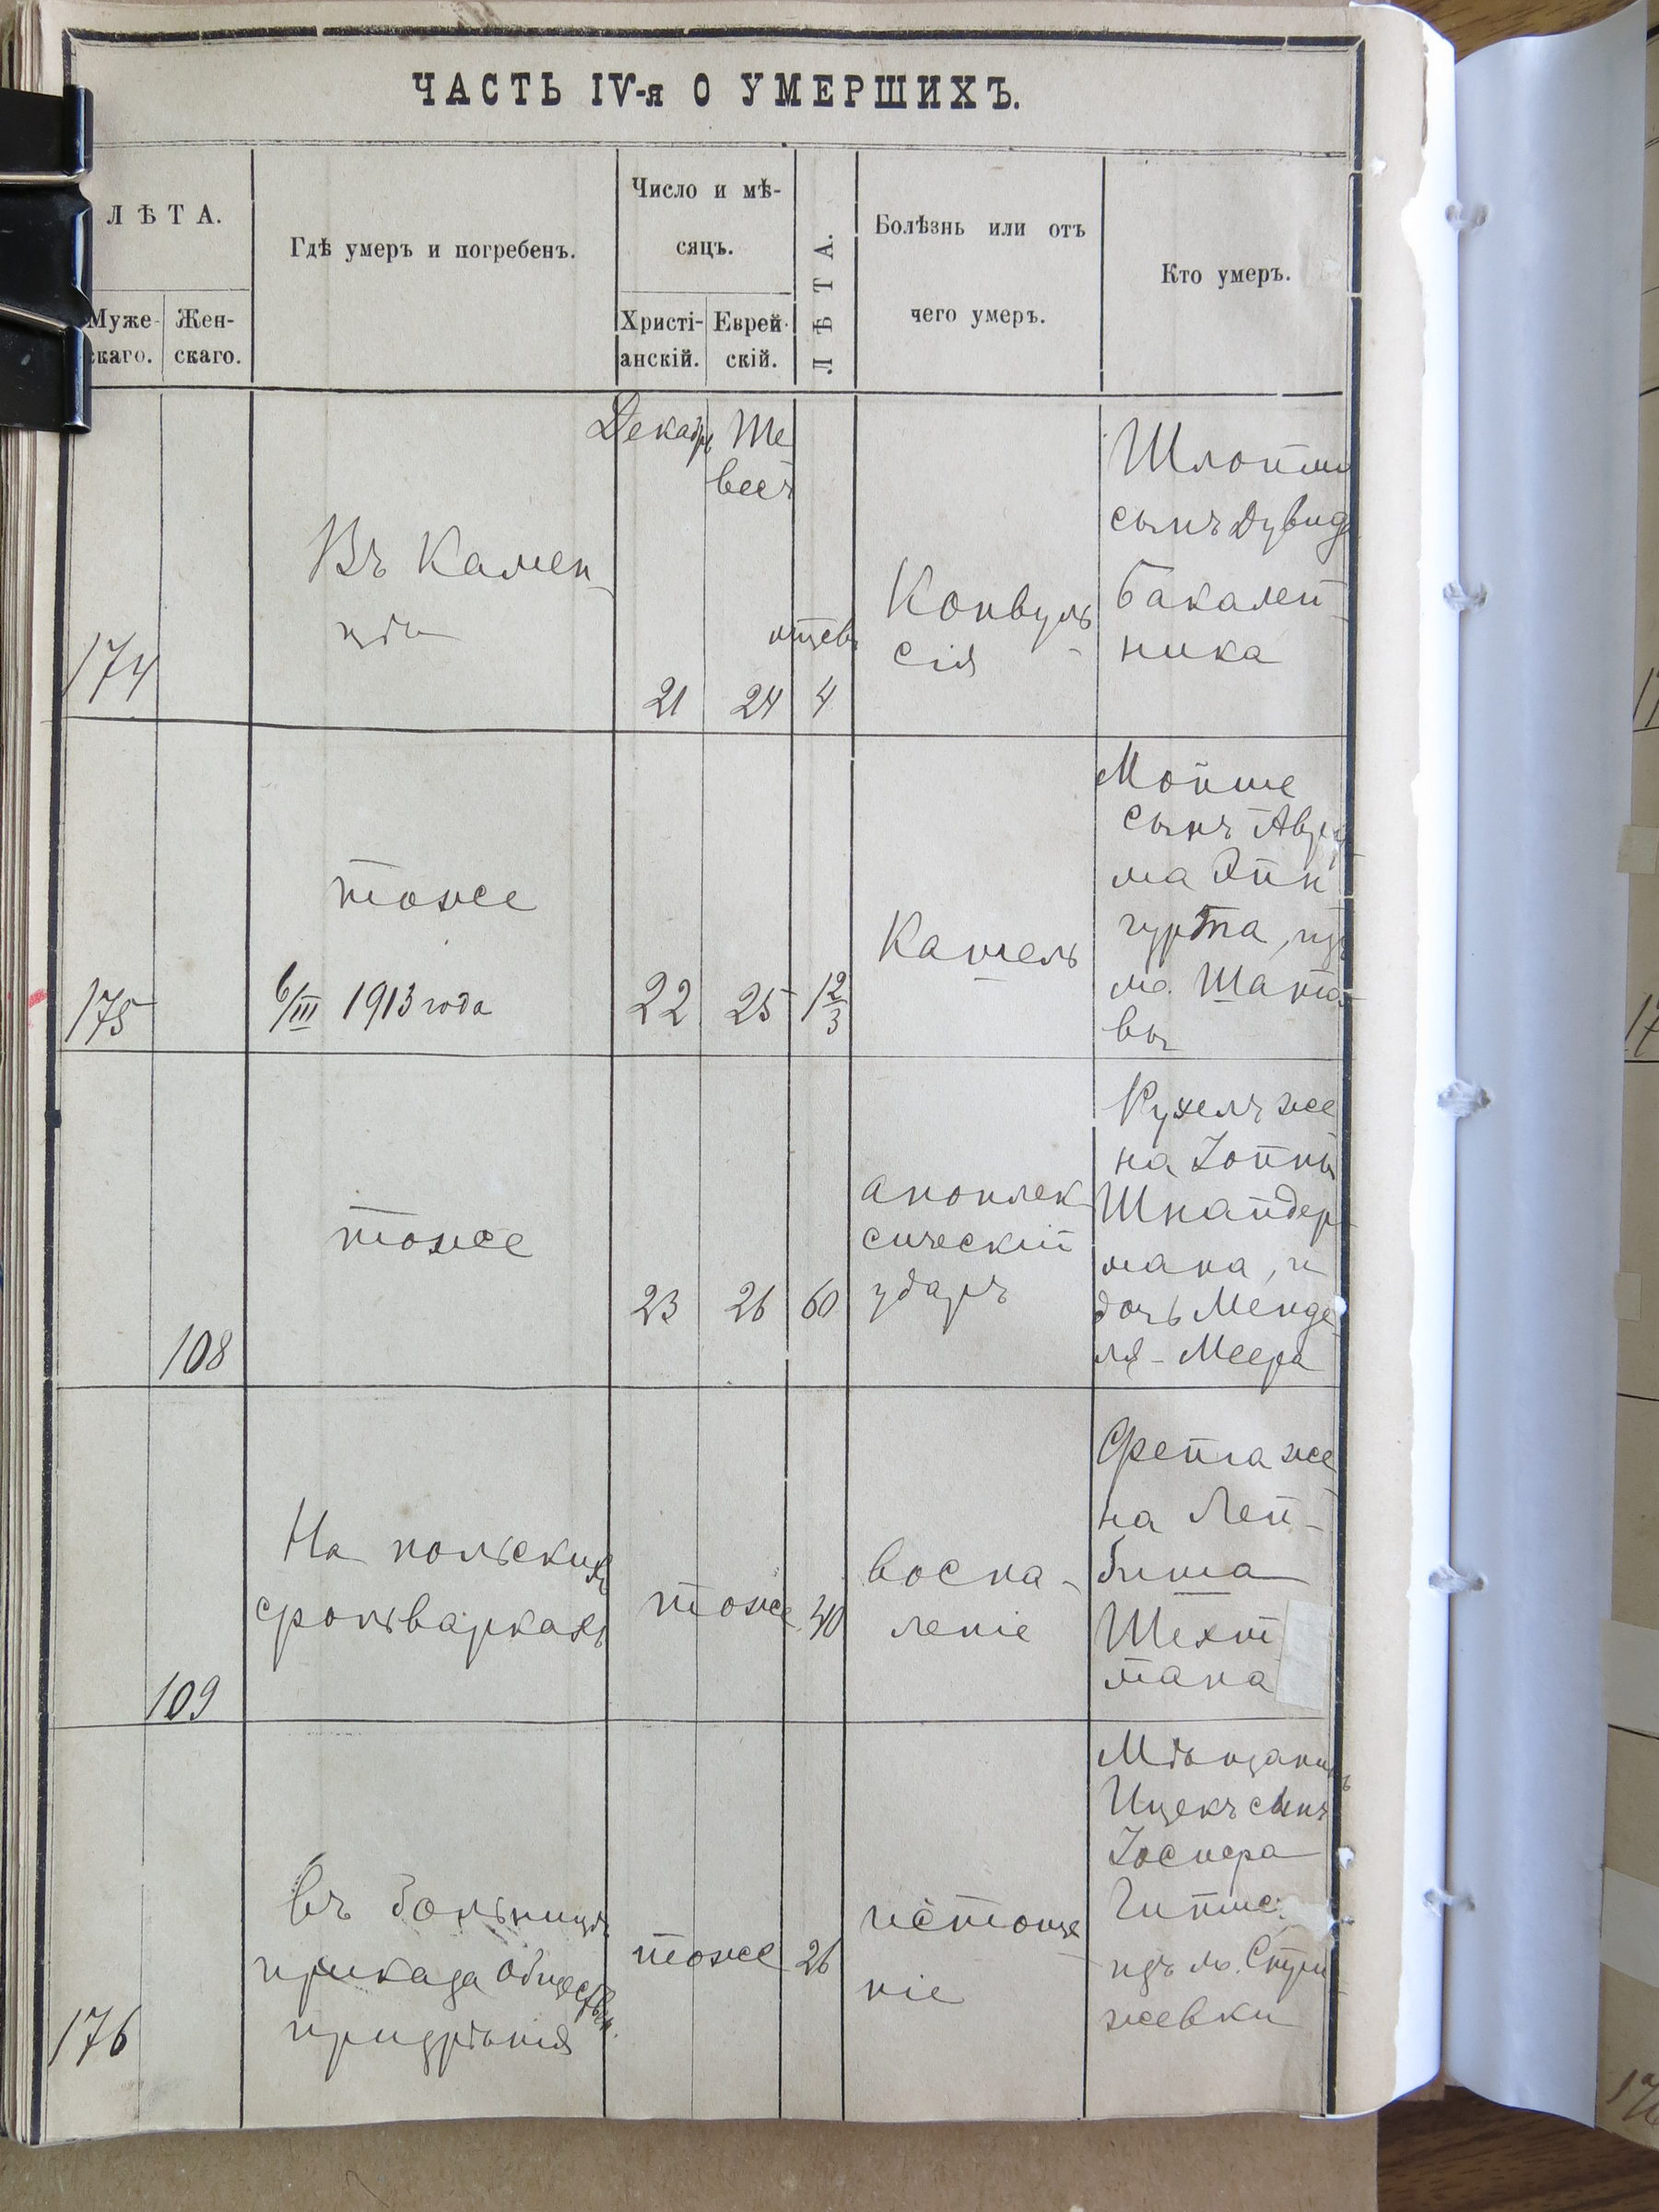 ЧАСТЬ IV-я О УМЕРШИХЪ.
ЛѢТА.
Муже-
скаго.
Жен-
скаго.
Гдѣ умеръ и погребенъ.
Число и мѣ-
сяцъ.
Христі-
анскій.
Еврей-
скій.
ЛѢТА.
Болѣзнь или отъ
чего умеръ.
Кто умеръ.
Декабрь
Те
весъ
174
Въ Камен
цѣ
21
24
4
Конвуль
сія
Шлойма
сынъ Дувида
Бакалей-
ника
175
тоже
6/III 1913 года
22
25
1 2/3
Кашель
Мойше
сынъ Авра
ма
изъ
м. Шата-
вы
108
тоже
23
26
60
апоплек
сический
ударъ
Рухель же
на
Шнайдер-
мана, и
дочь Менде
ля-Меера
109
На польскихъ
фольваркахъ
тоже
40
воспа-
леніе
Фейга же
на Лей-
биша
Шехт
мана
176
въ больницѣ
приказа обществен.
призрѣнія
тоже
26
истоще
ніе
Мѣщанинъ
Ицекъ сынъ
Іосифа
изъ м.
жевки